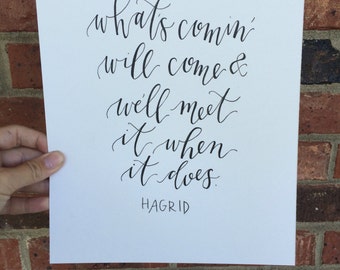 whats comin'
will come &
we'll meet
it when
it does.
HAGRID